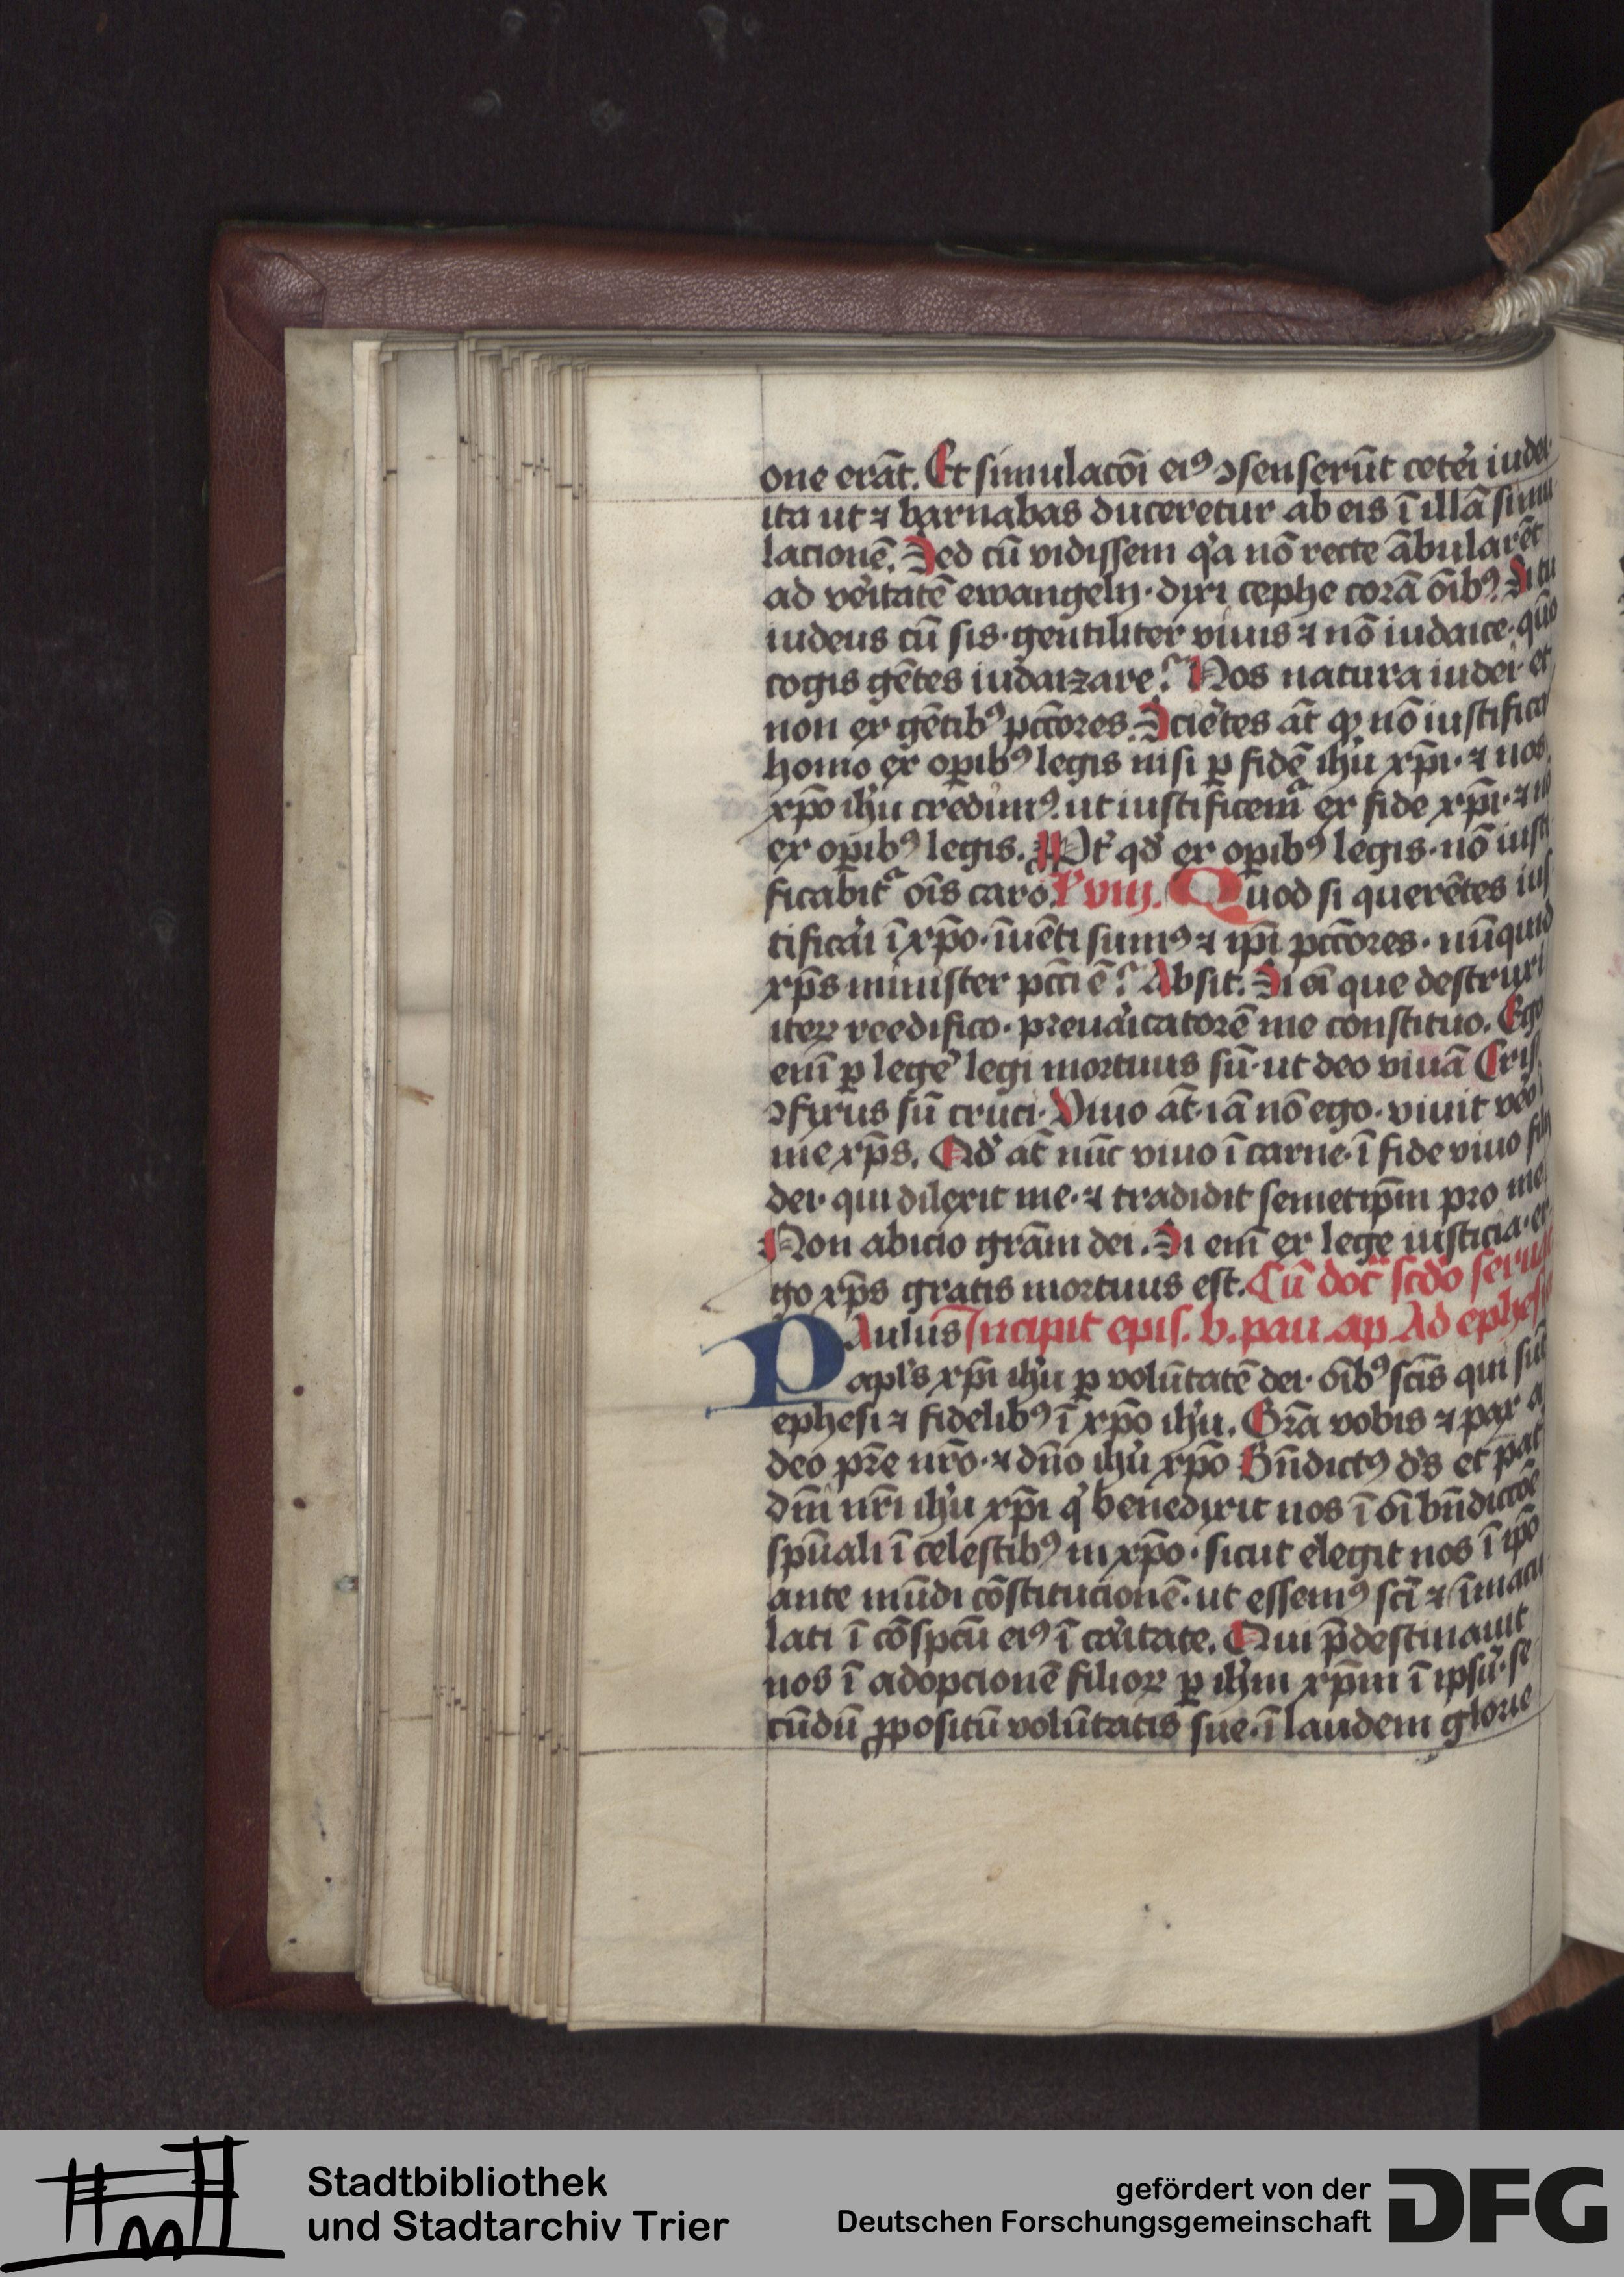 one erāt. Et simulacōi eiꝰ ↄsenserūt ceteri iudei
ita ut ⁊ barnabas duceretur ab eis ī illā simu
lacionē. Sed cū vidissem qͥa nō recte ābularēt
ad veͥtatē ewangelij· dixi cephe corā oībꝰ. Si tu
iudeus cū sis· gentiliter viuis ⁊ nō iudaice· quō
cogis gētes iudaizare? Nos natura iudei· et
non ex gētibꝰ pc̄cores. Sciētes āt ꝙ nō iustifica
homo ex oꝑibꝰ legis nisi ꝑ fidē ihū xp̄i· ⁊ nos
xp̄o ihū credimꝰ. ut iustificemͬ ex fide xp̄i· ⁊ nō
ex oꝑibꝰ legis. Pt̄ qd̓ ex oꝑibꝰ legis· nō iusti
ficabitͬ oīs caro. Xviij. Quod si querētes ius
tificari ī xp̄o· īuēti sumꝰ ⁊ ip̄i pc̄cores· nūquid
xp̄s minister pc̄ci ē? Absit. Si eī que destruxi
iteꝝ reedifico· p̄euaͥicatorē me constituo. Ego
enī ꝑ legē legi mortuus sū· ut deo viuā Crist
ↄfixus sū cruci· Viuo āt· iā nō ego· viuit vēo
me xp̄s. Qd̓ āt nūc viuo ī carne· ī fide viuo filij
dei· qui dilexit me· ⁊ tradidit semetip̄m pro me
Non abicio grām dei. Si enī ex lege iusticia· er
go xp̄s gratis mortuus est. Cū doc̄ sc̄do serua
Paulus Incipit epis. b. pau. ap Ad ephesi
apl's xp̄i ihū ꝑ volūtatē dei· oībꝰ scīs qui sūt
ephesi ⁊ fidelibꝰ ī xp̄o ihū. Gra vobis ⁊ pax a
deo pr̄e nr̄o· ⁊ dn̄o ihū xp̄o Bn̄dictꝰ d̓s et pat
dn̄i nr̄i ihū xp̄i qͥ benedixit nos ī oī bn̄dictōe
spūali ī celestibꝰ in xp̄o· sicut elegit nos ī ip̄o
ante mūdi cōstitucionē· ut essemꝰ scī ⁊ īmacu
lati ī cōspcū eiꝰ ī caͥtate. Qui p̄destinauit
nos ī adopcionē filioꝝ ꝑ ihm̄ xp̄m ī ipsū· se
cūdū ꝓpositū volūtatis sue· ī laudem glorie
Stadtbibliothek
und Stadtarchiv Trier
gefördert von der
Deutschen Forschungsgemeinschaft
DFG